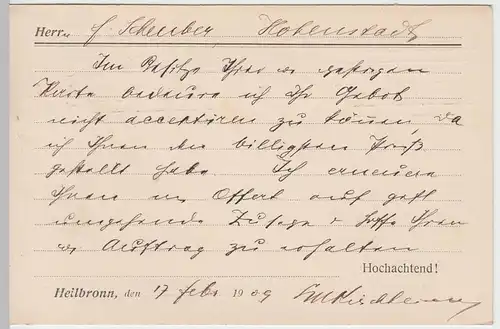 Herrn F. Scheuber, Hohenstadt
Im Besitze Ihrer w. gestrigen
Karte bedaure ich Ihr Gebot
nicht acceptieren zu können, da
ich Ihnen den billigsten Preiß
gestellt habe. Ich erneuere
Ihnen m. Offert auf gefl
umgehende Zusage & hoffe Ihren
w. Auftrag zu erhalten
Hochachtend!
Heilbronn, den 17 Febr 1909